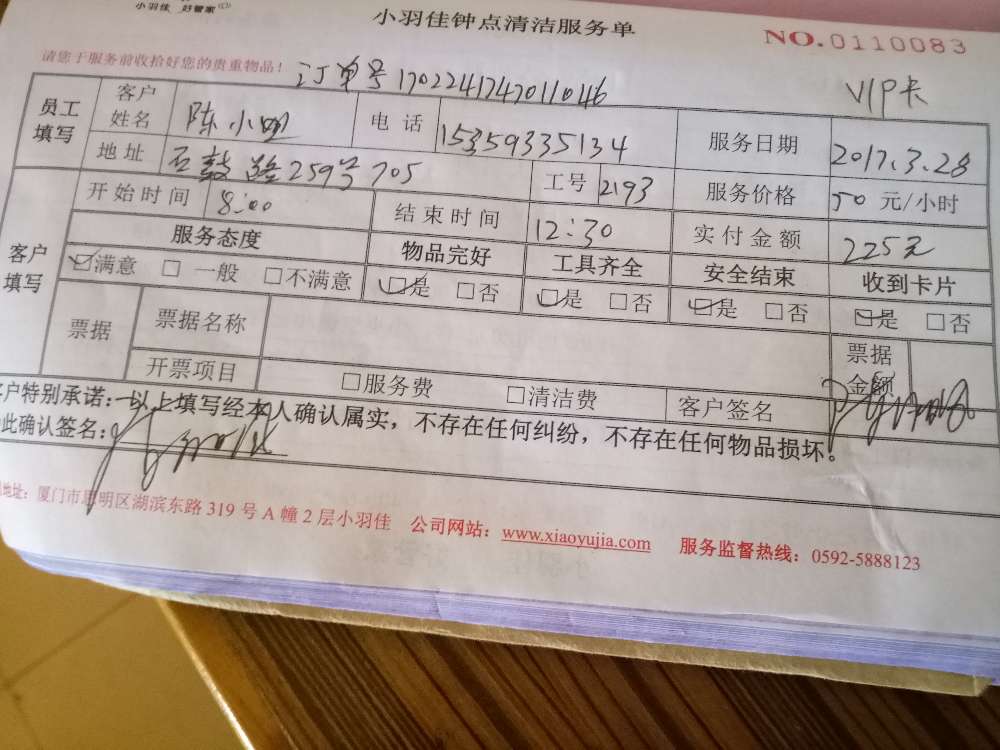 小羽佳 好管家
小羽佳钟点清洁服务单
NO.0110083
请您于服务前收拾好您的贵重物品！
订单号1702241747011046
VIP卡
员工填写 客户姓名 陈小明 电话 15359335134 服务日期 2017.3.28
地址 石鼓路259号705 工号 2193 服务价格 50 元/小时
客户填写 开始时间 8:00 结束时间 12:30 实付金额 225元
服务态度 物品完好 工具齐全 安全结束 收到卡片
☑满意 □一般 □不满意 ☑是 □否 ☑是 □否 ☑是 □否 ☑是 □否
票据 票据名称 票据金额
开票项目 □服务费 □清洁费 客户签名
客户特别承诺：以上填写经本人确认属实，不存在任何纠纷，不存在任何物品损坏。
此确认签名：
地址：厦门市思明区湖滨东路319号A幢2层小羽佳 公司网站：www.xiaoyujia.com 服务监督热线：0592-5888123